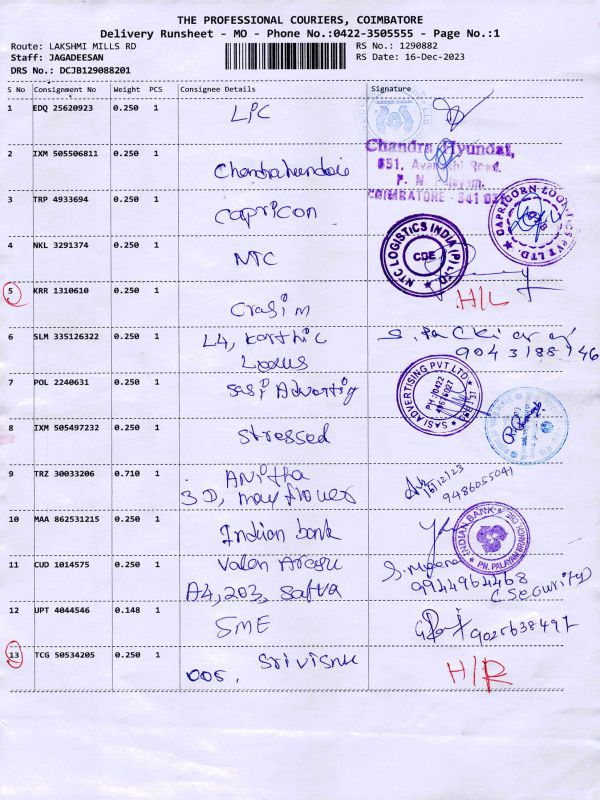 THE PROFESSIONAL COURIERS, COIMBATORE
Delivery Runsheet - MO - Phone No.:0422-3505555 - Page No.:1
Route: LAKSHMI MILLS RD RS No.: 1290882
Staff: JAGADEESAN RS Date: 16-Dec-2023
DRS No.: DCJB129088201
S No Consignment No Weight PCS Consignee Details Signature
1 EDQ 25620923 0.250 1 LPC
2 IXM 505506811 0.250 1 Chandrahundaie
Chandra Hyundai,
851, Avanashi Road,
P. N. Palayam,
COIMBATORE - 641 037
3 TRP 4933694 0.250 1 Capricon
CAPRICORN LOGISTICS PVT LTD.
4 NKL 3291374 0.250 1 NTC
NTC LOGISTICS INDIA (P) LTD
CBE
5 KRR 1310610 0.250 1 Crasim H/L
6 SLM 335126322 0.250 1 L4, Karthic
Loxus
9043188146
7 POL 2240631 0.250 1 Sasi Advertig
SASI ADVERTISING PVT LTD
PH:0422
8 IXM 505497232 0.250 1 Stressed
9 TRZ 30033206 0.710 1 Anitha
3D, mayflower
16/12/23
9486055041
10 MAA 862531215 0.250 1 Indian bank
INDIAN BANK
PN. PALAYAM BRANCH, CBE
11 CUD 1014575 0.250 1 Valan Arasu
A4, 203, Safva
9944964468
C Security)
12 UPT 4044546 0.148 1 SME
9025638497
13 TCG 50534205 0.250 1 Srivisnu
005, H/R